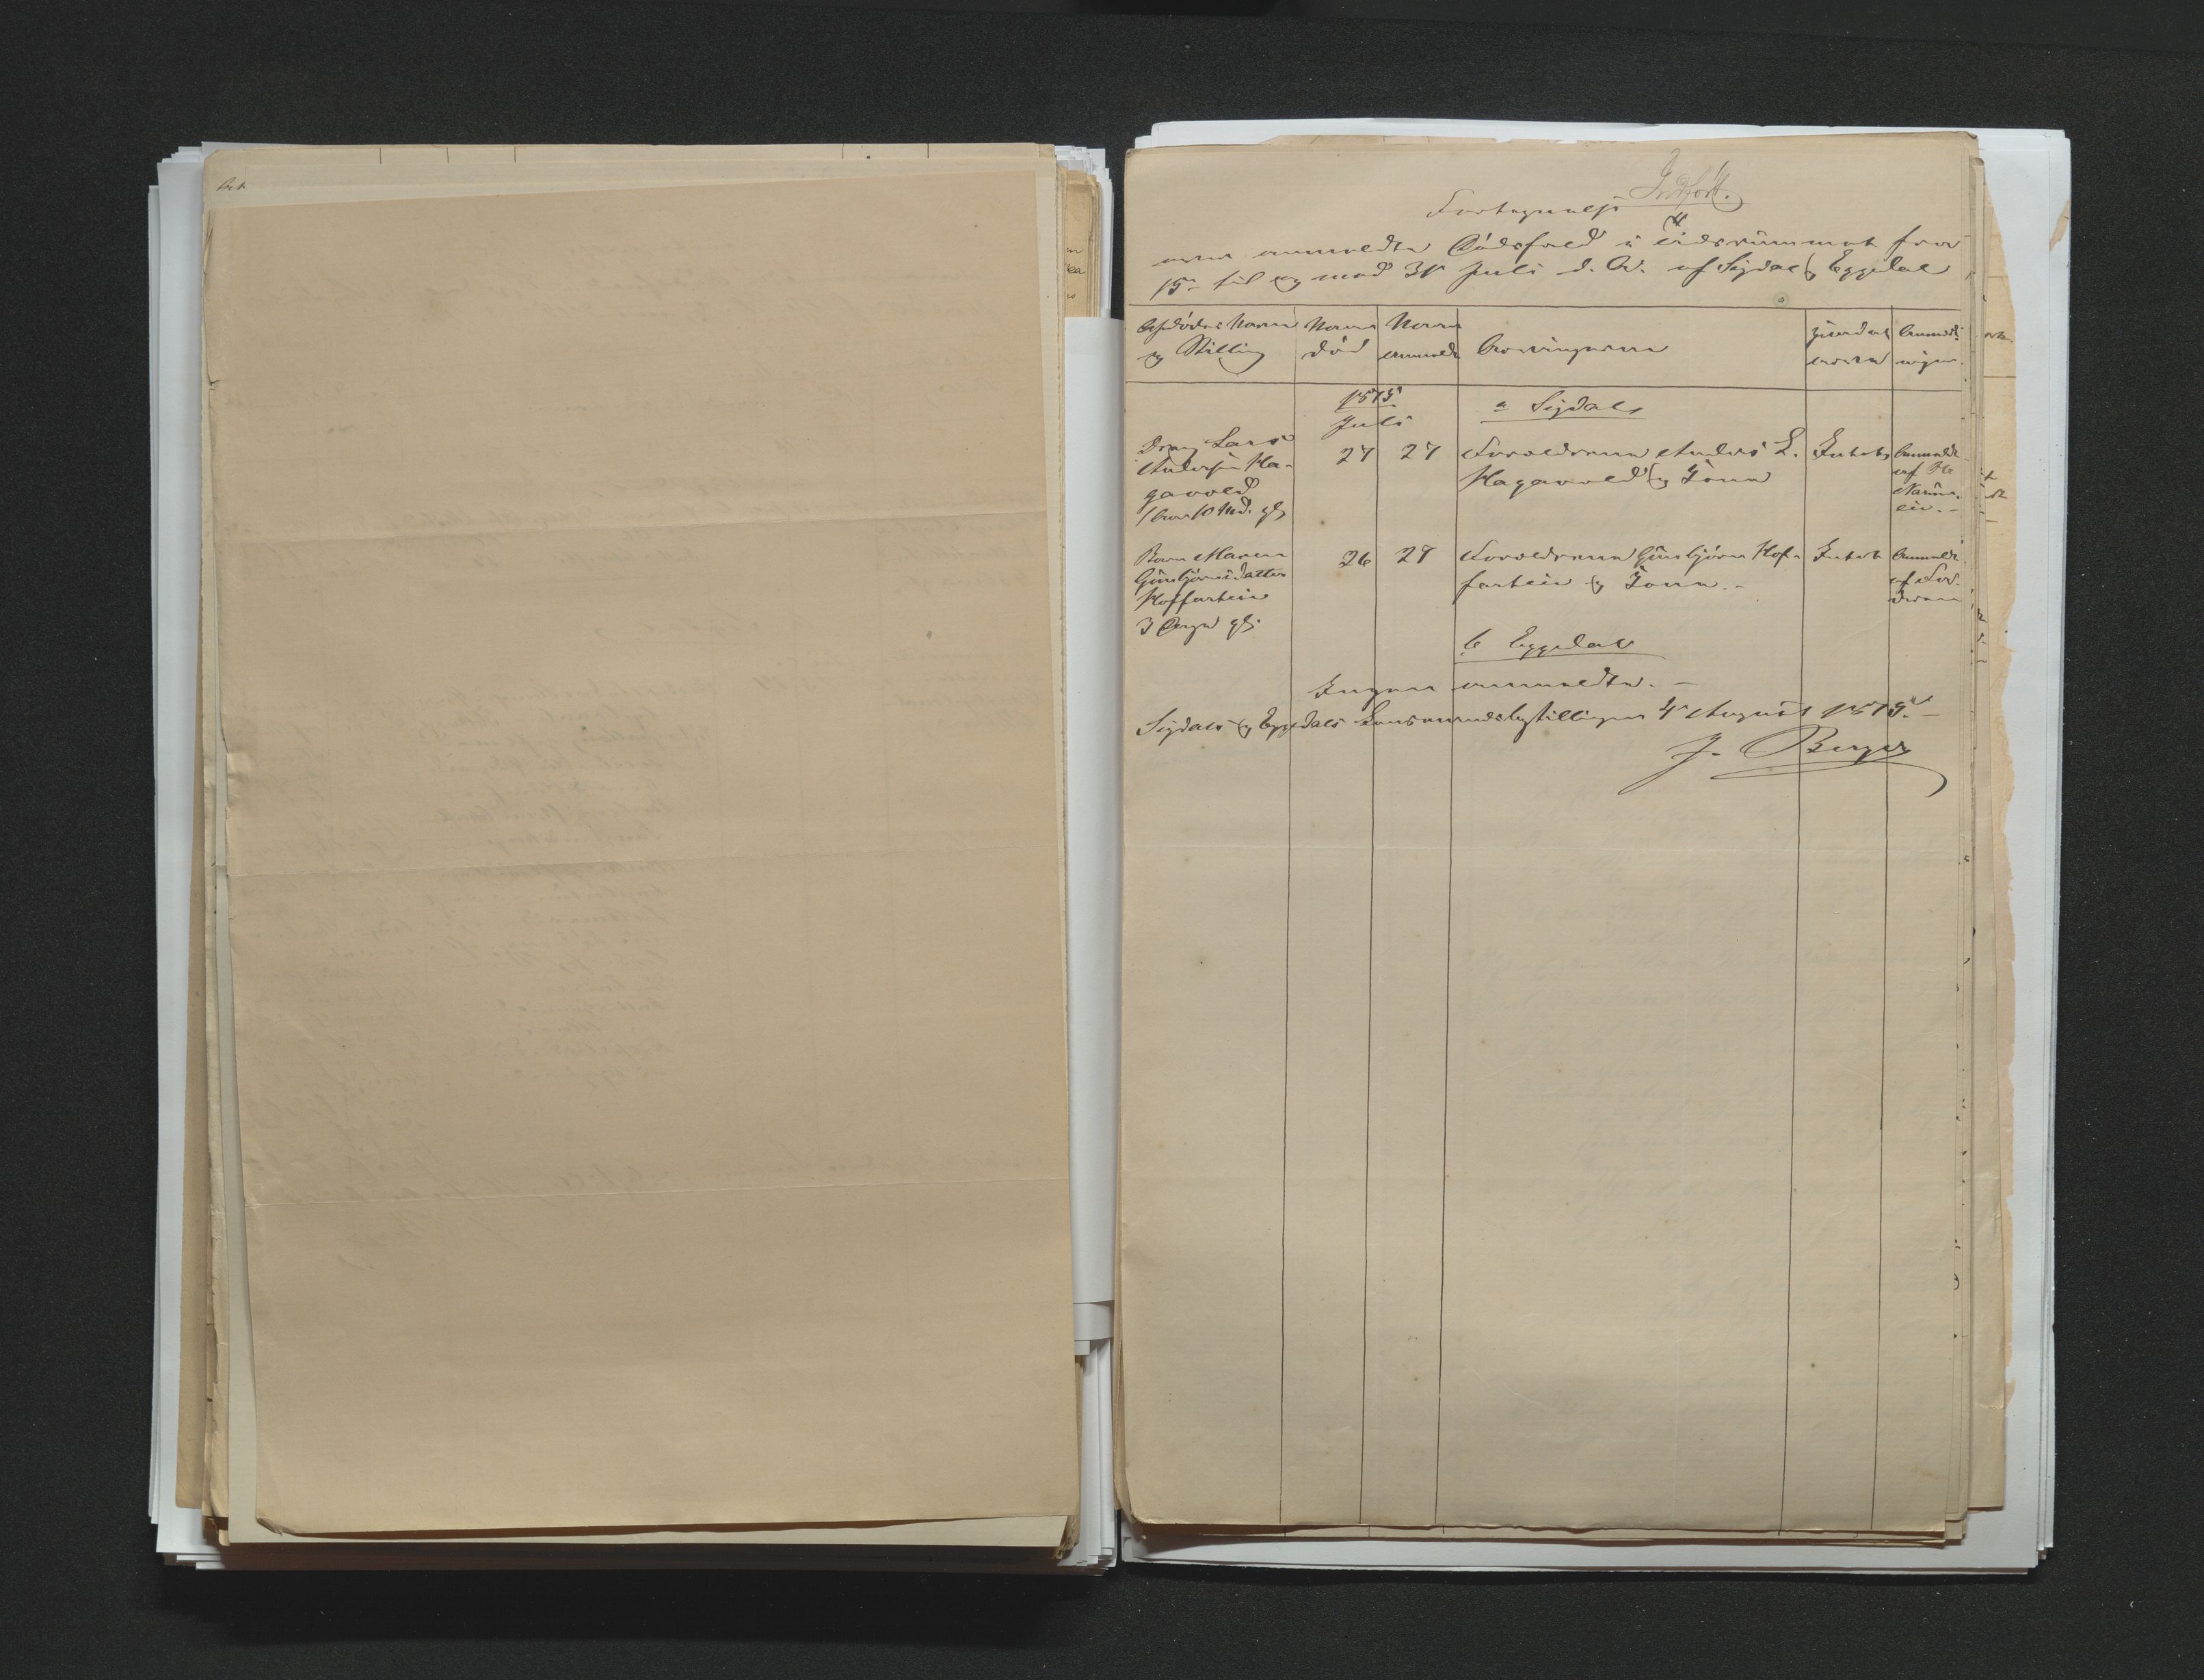 Indført.
Fortegnelse
over anmeldte Dödsfald i tidsrummet fra
15de til og med 31 Juli d. A. af Sigdal og Eggedal
Afdödes Navn
og Stilling
Naar
död
Naar
anmeldt
Arvingerne
Anmærk-
ninger
1875
Juli
a Sigdal
Dreng Lars
Andersen Ha-
gavold
1 Aar 10 Md. gl.
27
27
Forældrene Anders L.
Hagavold og Kone
Intet
Anmeldt
af
Barn Maren
Gunbjörnsdatter
Hoffartein
3 Dage gl.
26
27
Forældrene Gunbjörn Hof-
fartein og Kone.-
Intet
Anmeldt
af
b Eggedal
Ingen anmeldte.-
Sigdals og Eggedals Lensmandsbestillingen 4 August 1875.-
J. Berger